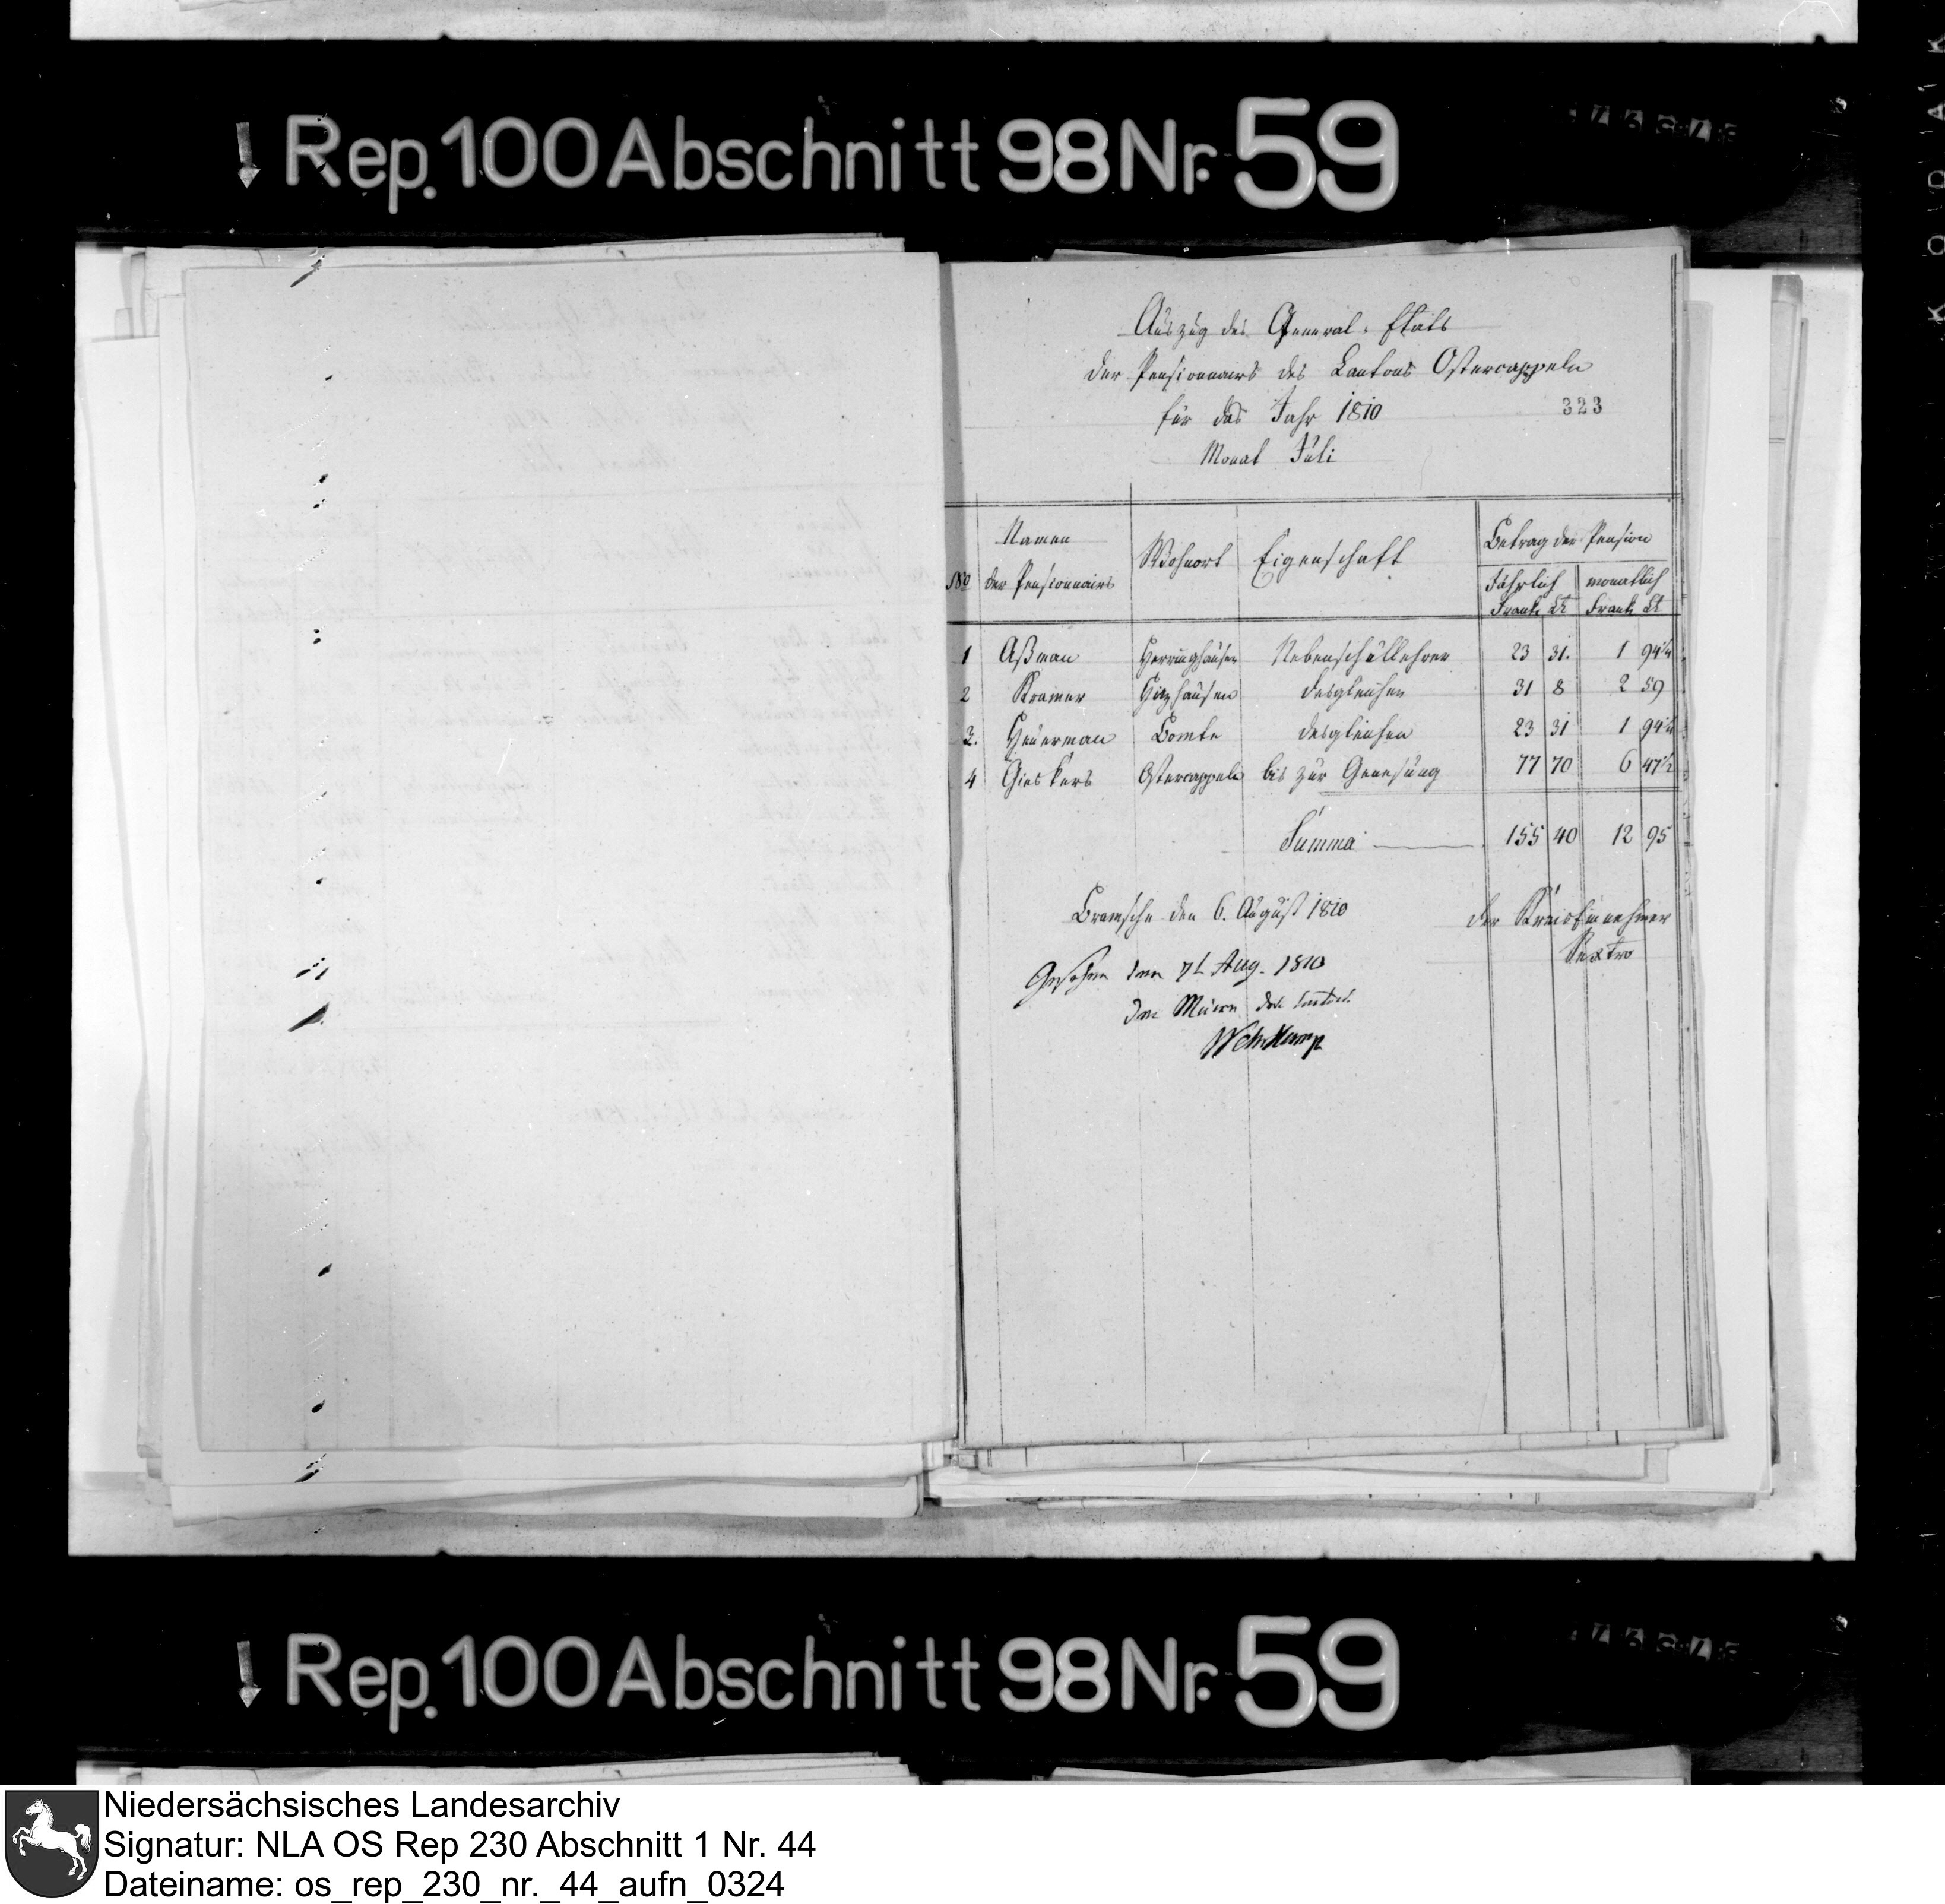 Rep. 100 Abschnitt 98 Nr. 59
Auszug des General-Etats
der Pensionnairs des Cantons Ostercappeln
für das Jahr 1810
323
Monat Juli
No Namen der Pensionnairs Wohnort Eigenschaft Betrag der Pension
Jährlich monatlich
Frank Ct Frank Ct
1 Aßman Herringhausen Nebenschullehrer 23 31. 1 94¼
2 Kramer Hitzhausen desgleichen 31 8 2 59
3. Heuerman Bomte desgleichen 23 31 1 94¼
4 Gieskers Ostercappeln bis zur Genesung 77 70 6 47½
Summa 155 40 12 95
Bramsche den 6. August 1810
der Kreiseinnehmer
Sextro
Gesehen den 7t Aug. 1810
Der Maire des Cantons
Rep. 100 Abschnitt 98 Nr. 59
Niedersächsisches Landesarchiv
Signatur: NLA OS Rep 230 Abschnitt 1 Nr. 44
Dateiname: os_rep_230_nr._44_aufn_0324